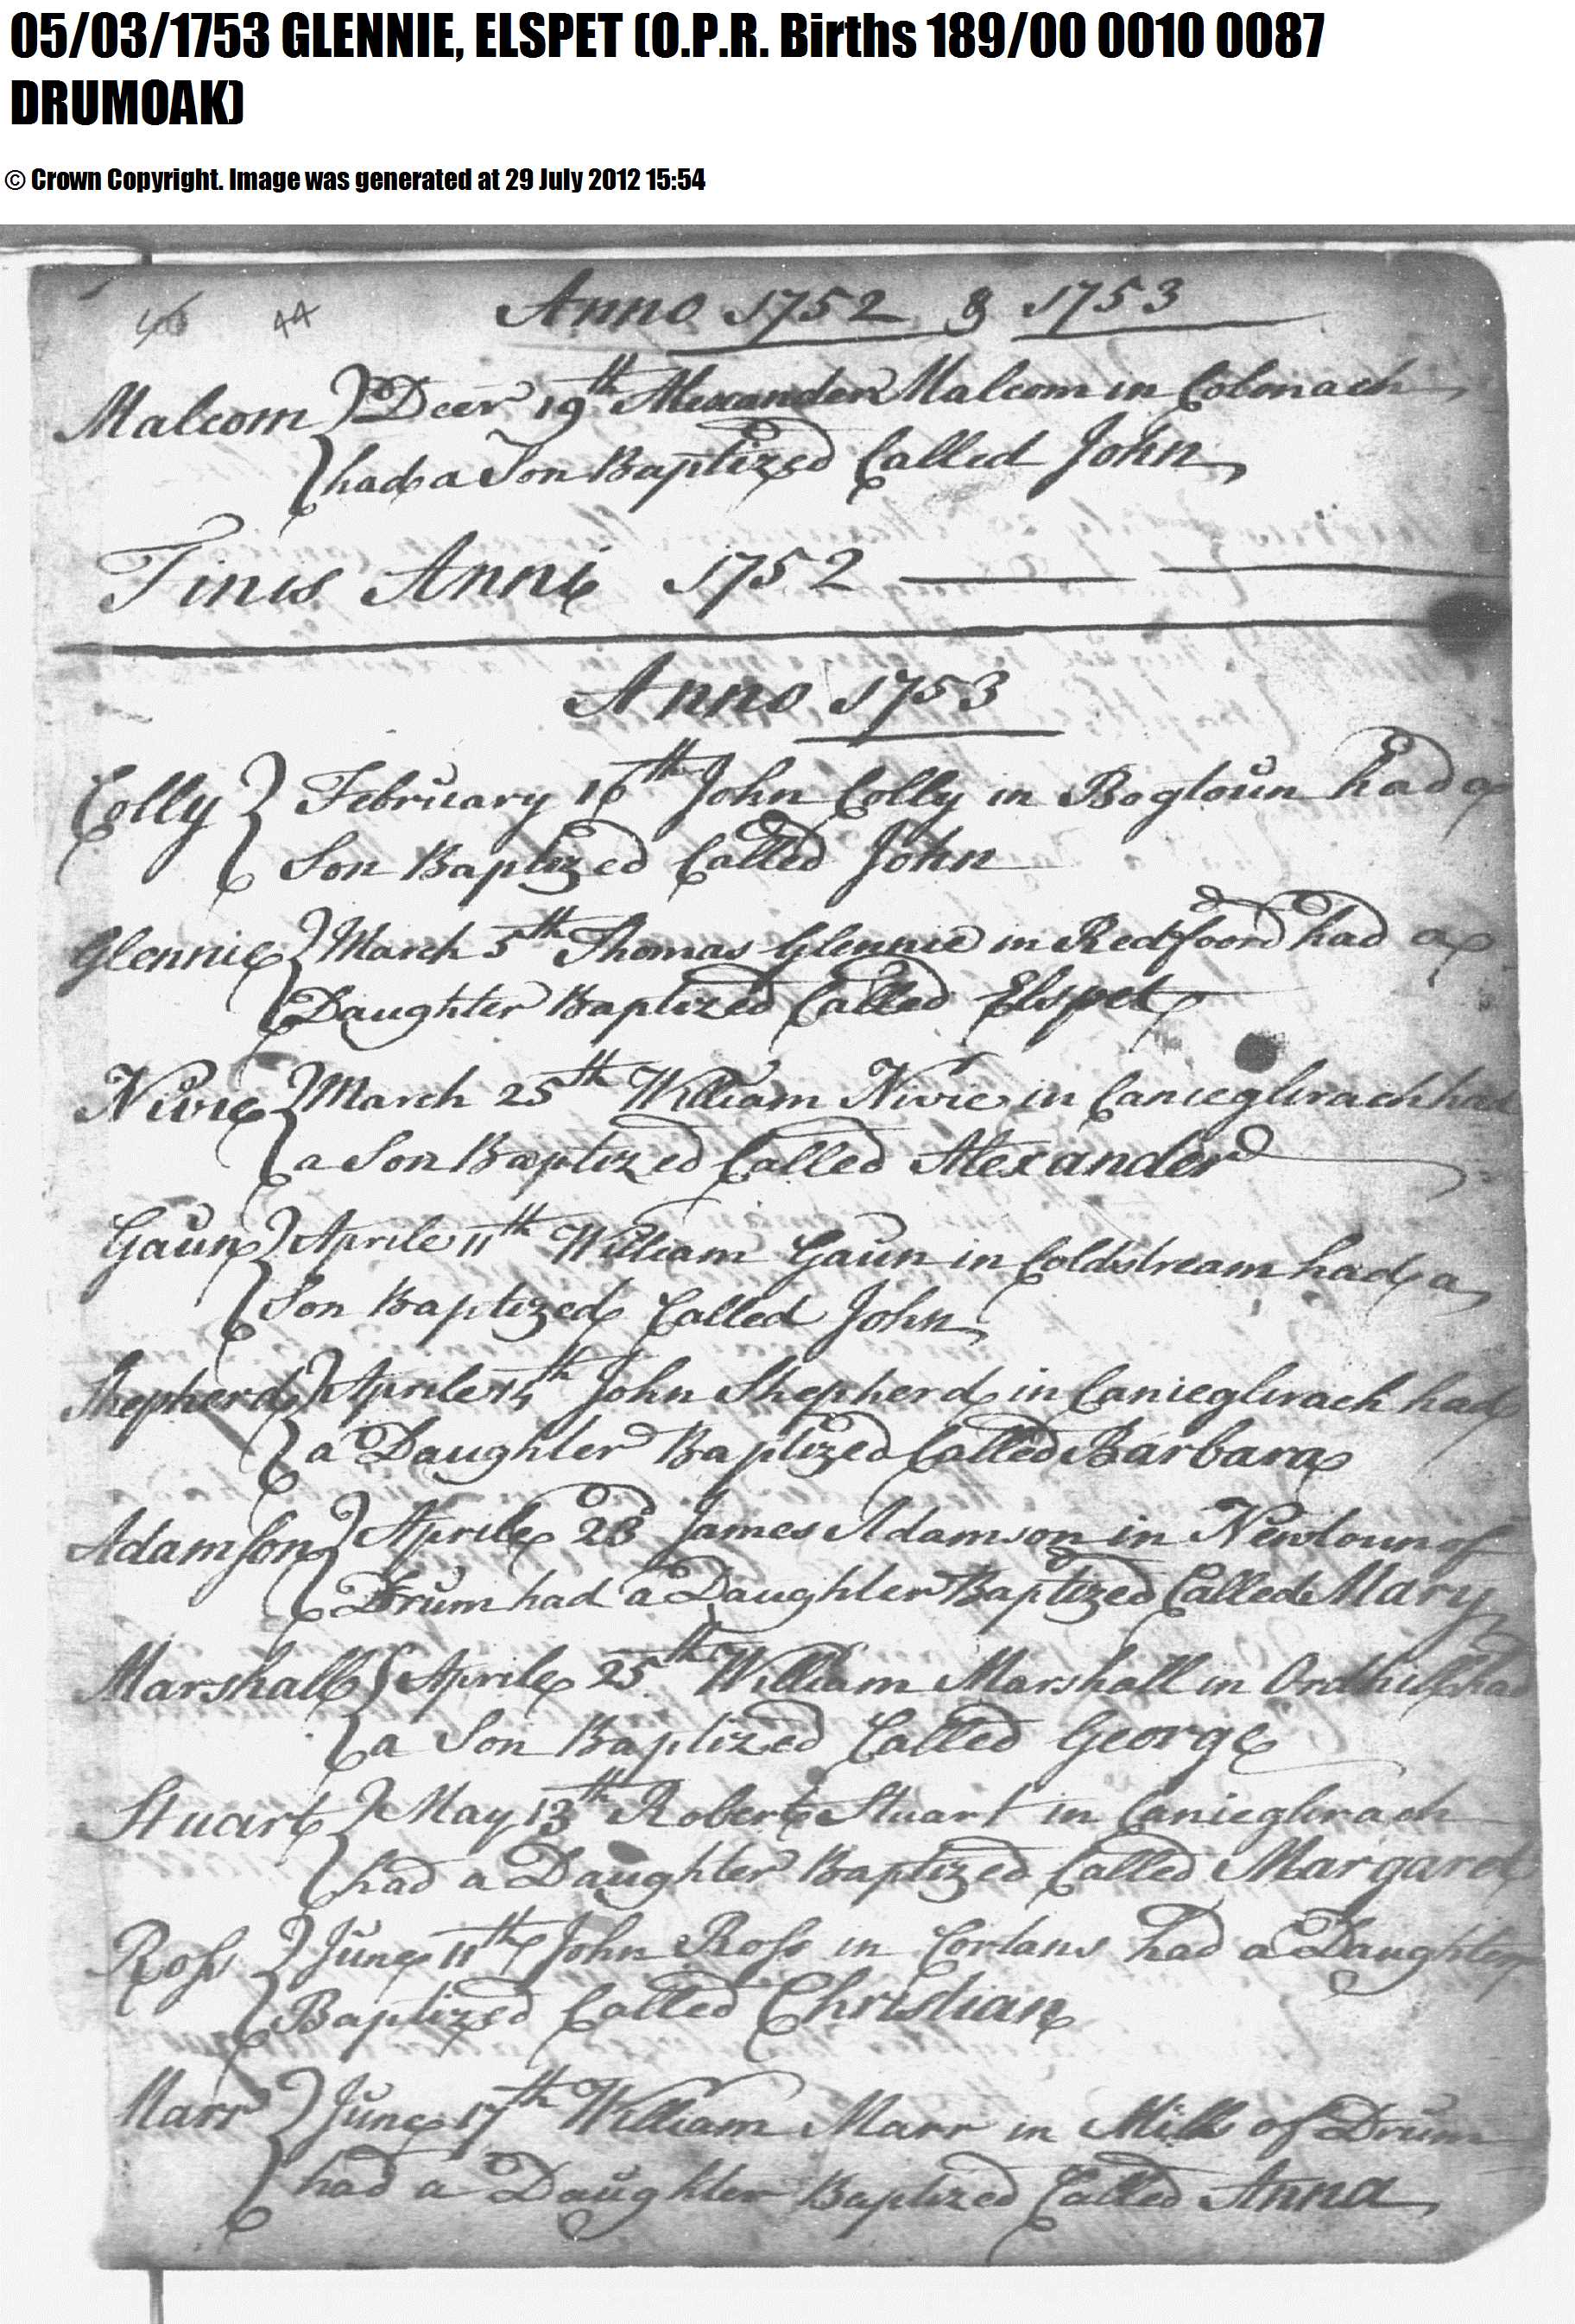 05/03/1753 GLENNIE, ELSPET (O.P.R. Births 189/00 0010 0087
DRUMOAK)
© Crown Copyright. Image was generated at 29 July 2012 15:54
44
Anno 1752 & 1753
Malcom Decer 19th Alexander Malcom in Colonach
had a Son Baptized Called John
Finis Anni 1752
Anno 1753
Colly February 16th John Colly in Bogtoun had a
Son Baptized Called John
Glennie March 5th Thomas Glennie in Redfoord had a
Daughter Baptized Called Elspet
Nivie March 25th William Nivie in Canieglirach had
a Son Baptized Called Alexander
Gaun Aprile 11th William Gaun in Coldstream had a
Son Baptized Called John
Shepherd Aprile 14th John Shepherd in Canieglirach had
a Daughter Baptized Called Barbara
Adamson Aprile 23 James Adamson in Newtoun of
Drum had a Daughter Baptized Called Mary
Marshall Aprile 25th William Marshall in Ordhill had
a Son Baptized Called George
Stuart May 13th Robert Stuart in Canieglirach
had a Daughter Baptized Called Margaret
Ross June 11th John Ross in Cortans had a Daughter
Baptized Called Christian
Marr June 17th William Marr in Mill of Drum
had a Daughter Baptized Called Anna